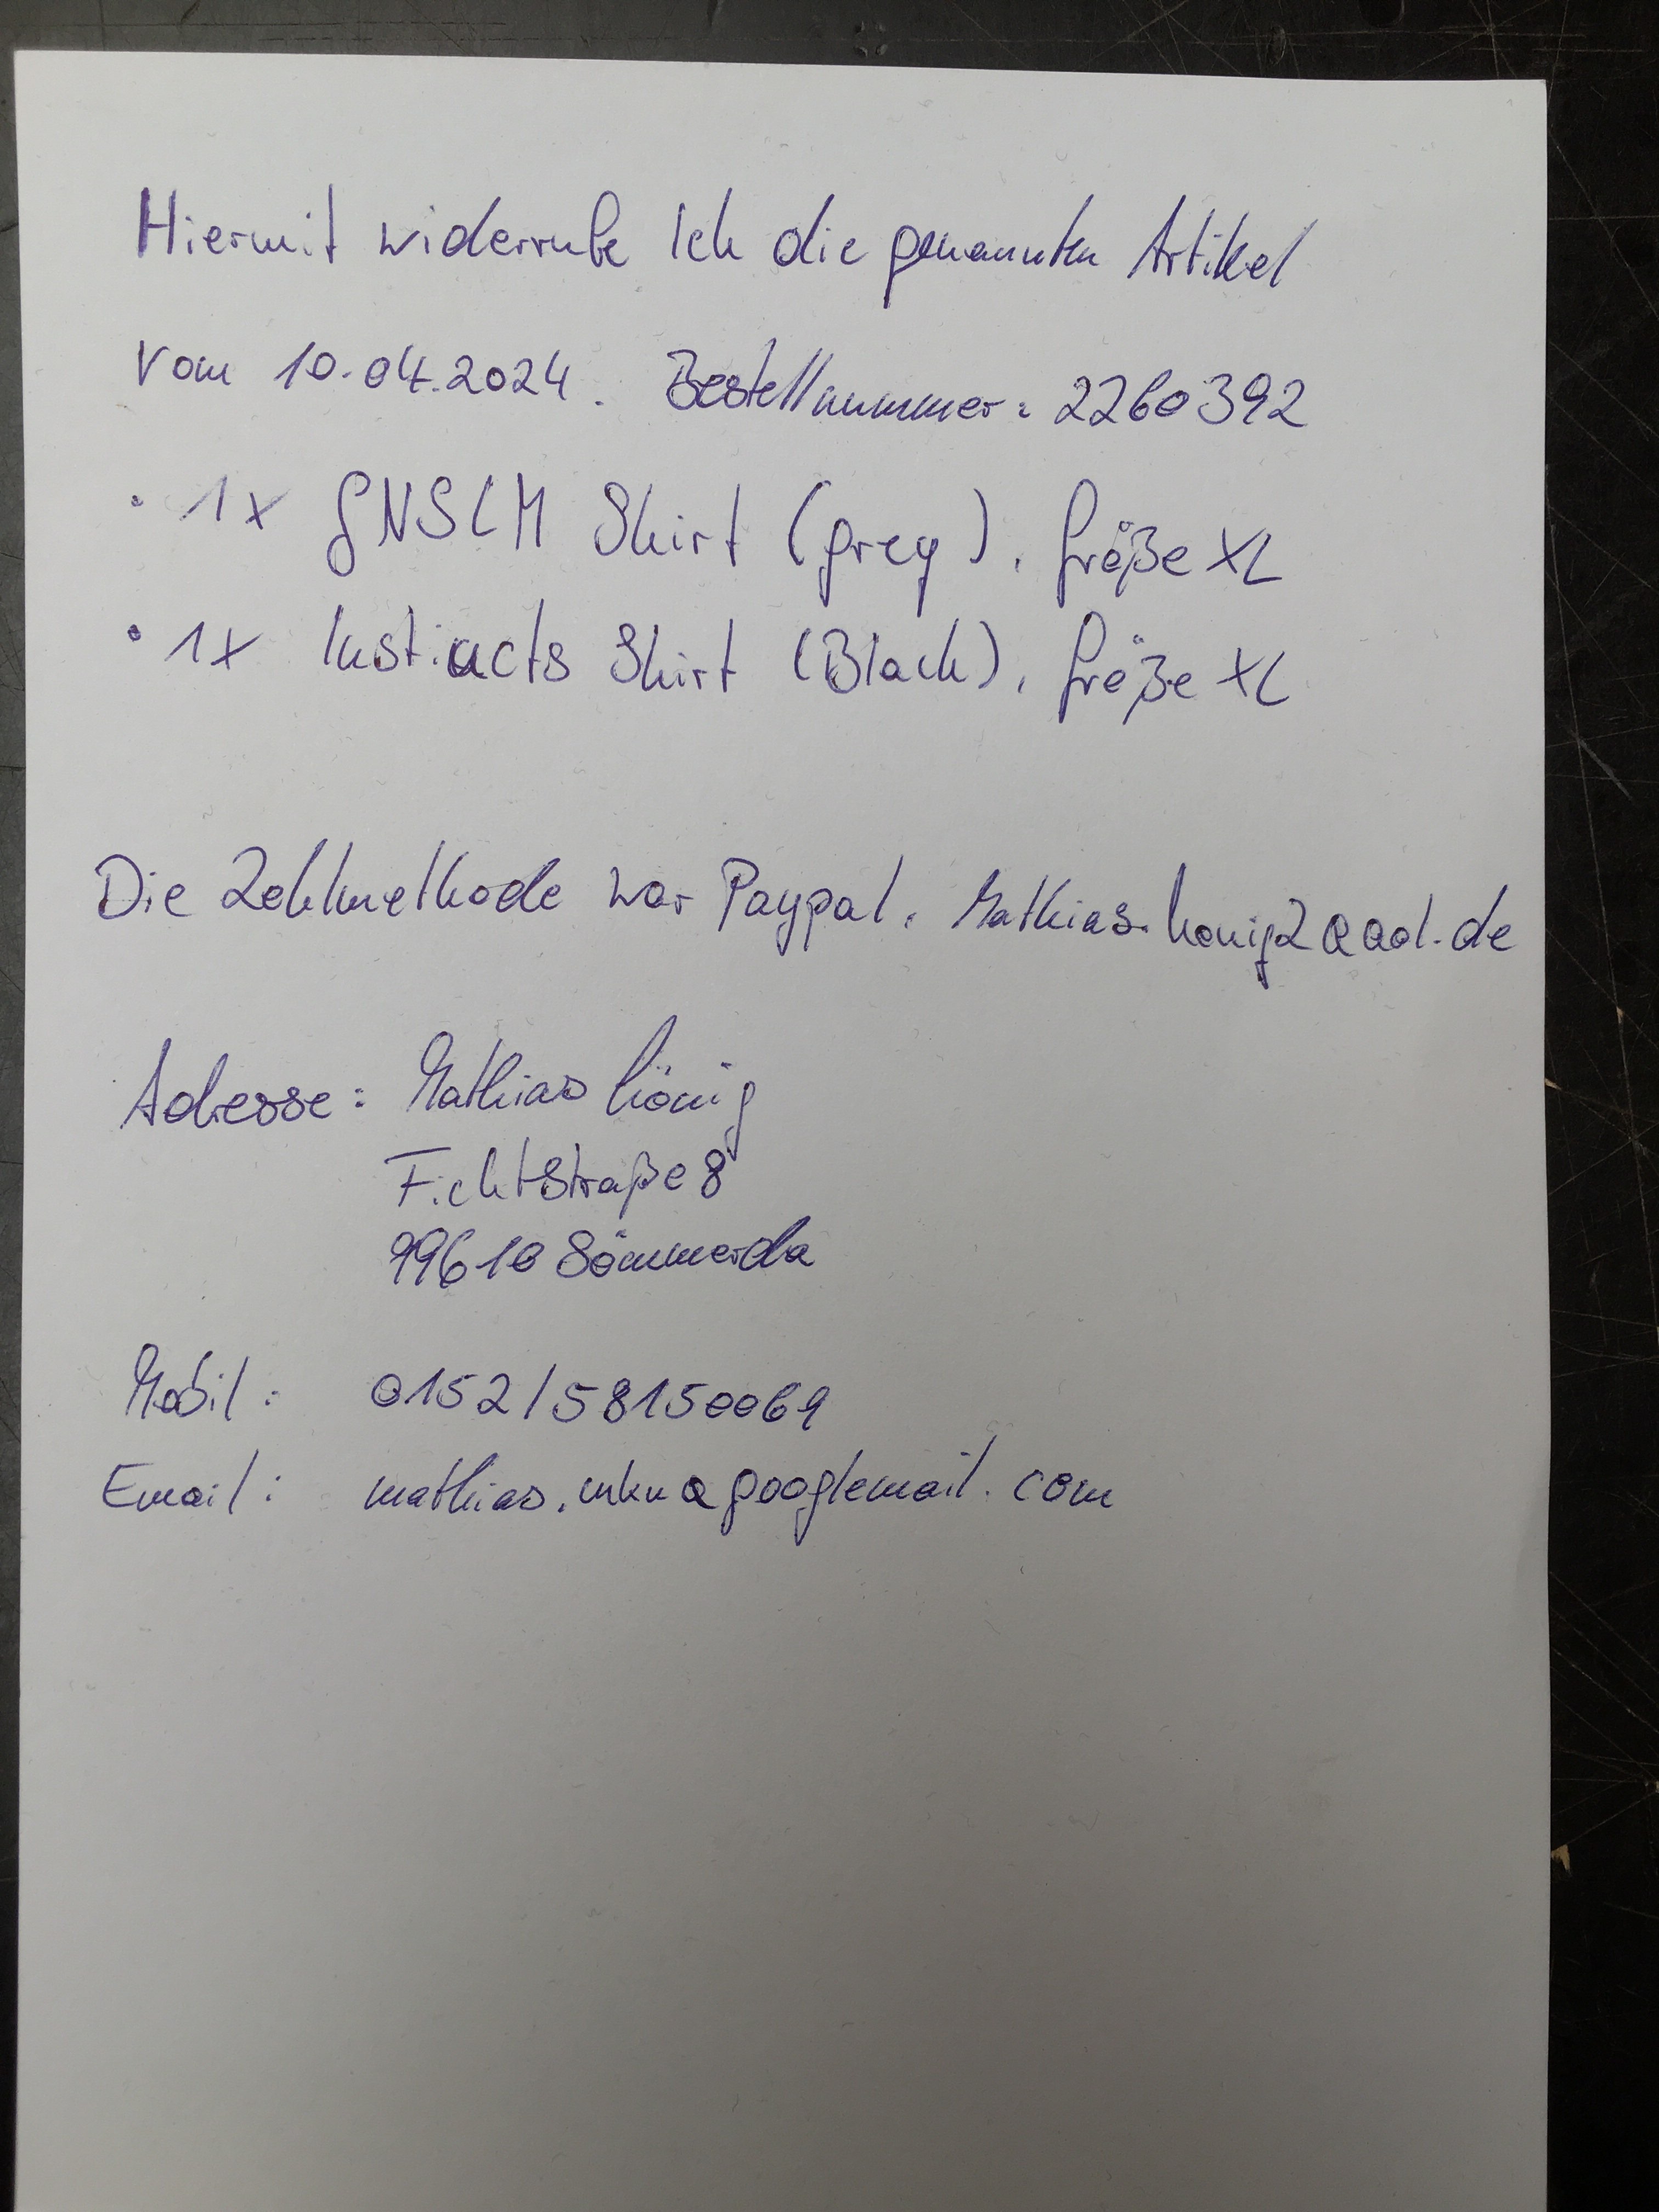 Hiermit widerrufe Ich die genannten Artikel
Vom 10.04.2024. Bestellnummer: 2260392
• 1x GNSLM Shirt (grey), Größe XL
• 1x Instincts Shirt (Black), Größe XL
Die Zahlmethode war Paypal. Mathias.konig2@aol.de
Adresse: Mathias König
Fichtstraße 8
99610 Sömmerda
Mobil: 0152/58150069
Email: mathias.mkn@googlemail.com